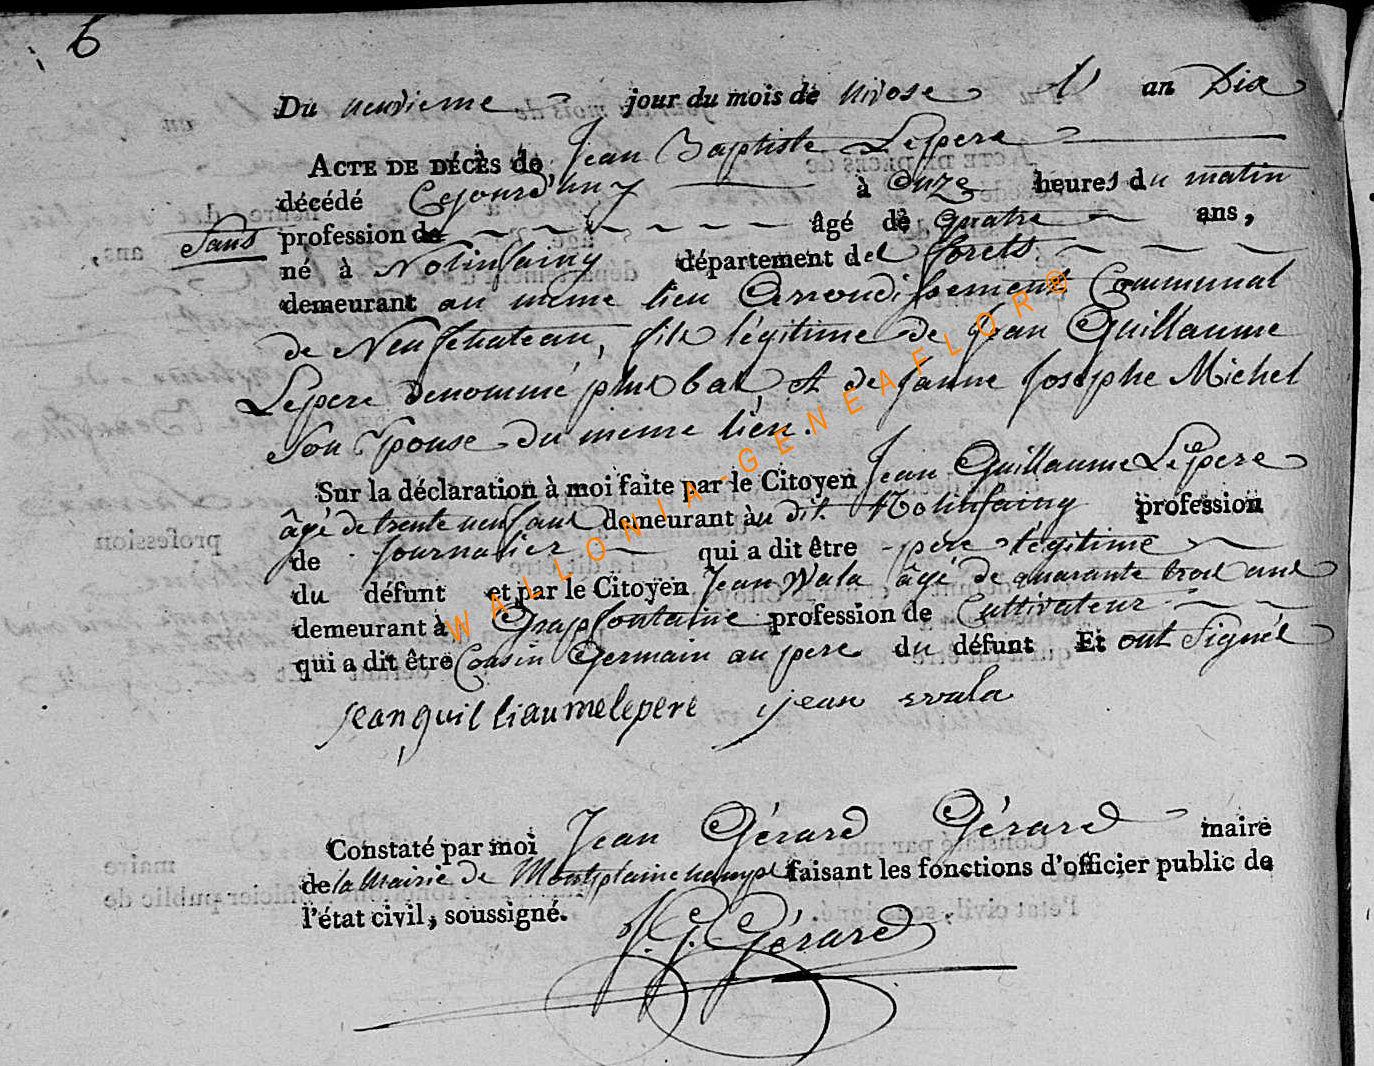 6
Du neuvieme jour du mois de nivose l' an Dix
ACTE DE DÉCÈS de Jean Baptiste Lepere
décédé Cejourd'huy à Onze heures du matin
Sans profession de âgé de quatre ans,
né à Nolinfaing département des forets
demeurant au meme lieu Arrondissement Communal
de Neufchateau, fils légitime de Jean Guillaume
Lepere denommé plus bas, et de Janne Josephe Michel
Son Epouse du meme lieu.
Sur la déclaration à moi faite par le Citoyen Jean Guillaume Lepere
âgé de trente neuf ans demeurant au dit Nolinfaing profession
de journalier qui a dit être père légitime
du défunt et par le Citoyen Jean Wala âgé de quarante trois ans
demeurant à Grapfontaine profession de Cultivateur
qui a dit être Cousin Germain au pere du défunt Et ont Signés
jean guilliaume lepere jean wala
Constaté par moi Jean Gérard Gérard maire
de la Mairie de Montplainchamps faisant les fonctions d'officier public de
l'état civil, soussigné.
J. G. Gérard
WALLONIA-GENEAFLOR®